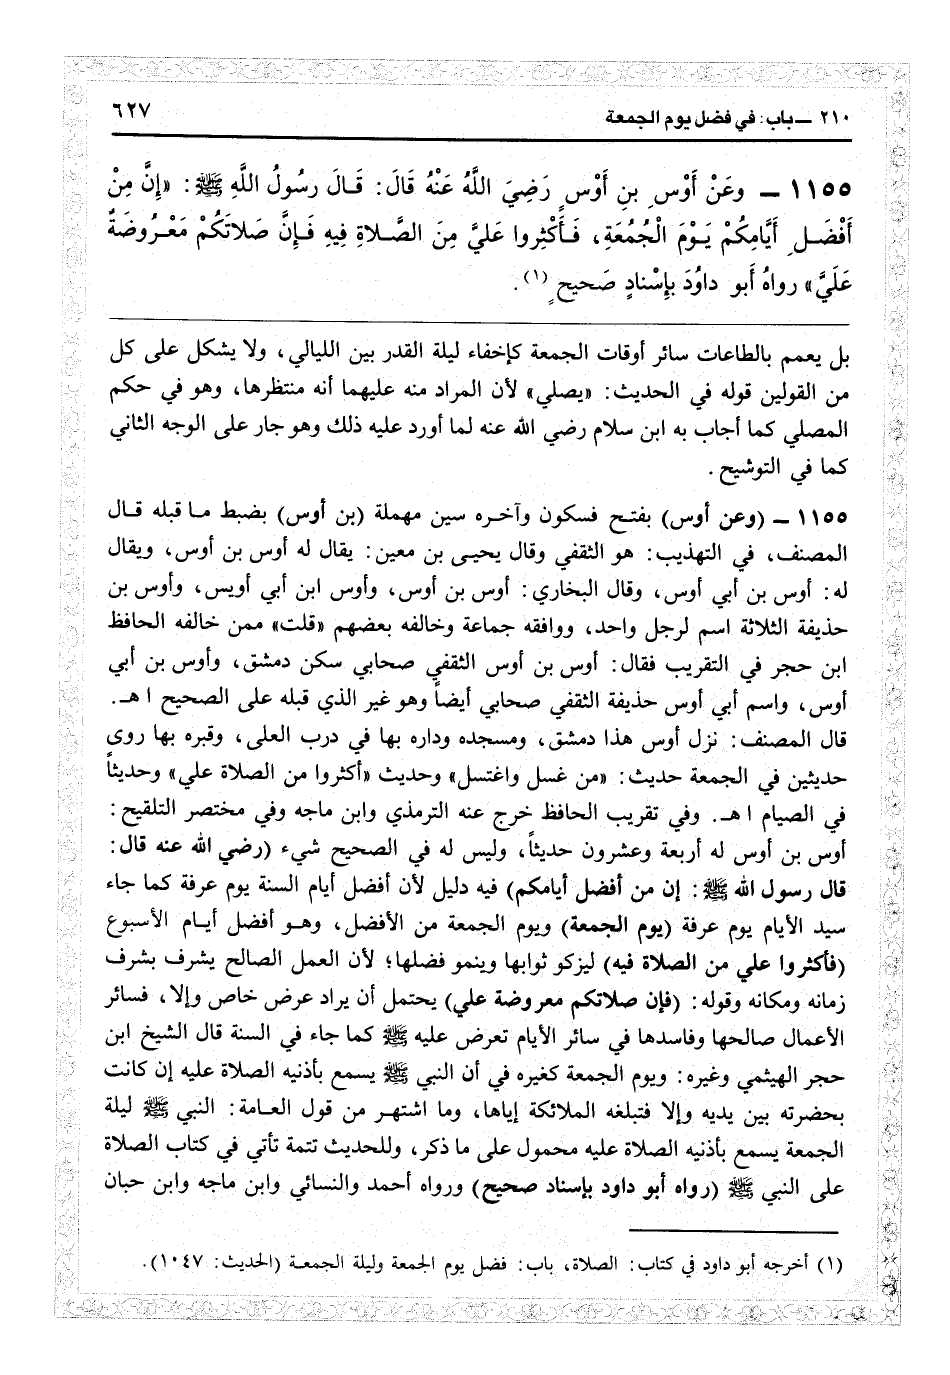 ٢١٠ ــ باب: في فضل يوم الجمعة
٦٢٧
١١٥٥ ــ وعَنْ أَوْسِ بنِ أَوْسٍ رَضِيَ اللَّهُ عَنْهُ قَالَ: قَـالَ رسُولُ اللَّهِ ﷺ: «إنَّ مِنْ
أَفْضَـلِ أَيَّامِكُمْ يَـوْمَ الْجُمُعَةِ، فَـأَكْثِروا عَليَّ مِنَ الصَّـلاةِ فِيهِ فَـإنَّ صَلاتَكُمْ مَعْـرُوضَةٌ
عَلَيَّ» رواهُ أبو داوُدَ بإسْنادٍ صَحيحٍ(١).
بل يعمم بالطاعات سائر أوقات الجمعة كإخفاء ليلة القدر بين الليالي، ولا يشكل على كل
من القولين قوله في الحديث: «يصلي» لأن المراد منه عليهما أنه منتظرها، وهو في حكم
المصلي كما أجاب به ابن سلام رضي الله عنه لما أورد عليه ذلك وهو جار على الوجه الثاني
كما في التوشيح.
١١٥٥ ــ (وعن أوس) بفتـح فسكون وآخـره سين مهملة (بن أوس) بضبط مـا قبله قـال
المصنف، في التهذيب: هو الثقفي وقال يحيـى بن معين: يقال له أوس بن أوس، ويقال
له: أوس بن أبي أوس، وقال البخاري: أوس بن أوس، وأوس ابن أبي أويس، وأوس بن
حذيفة الثلاثة اسم لرجل واحد، ووافقه جماعة وخالفه بعضهم «قلت» ممن خالفه الحافظ
ابن حجر في التقريب فقال: أوس بن أوس الثقفي صحابي سكن دمشق، وأوس بن أبي
أوس، واسم أبي أوس حذيفة الثقفي صحابي أيضاً وهو غير الذي قبله على الصحيح اهـ.
قال المصنف: نزل أوس هذا دمشق، ومسجده وداره بها في درب العلى، وقبره بها روى
حديثين في الجمعة حديث: «من غسل واغتسل» وحديث «أكثروا من الصلاة علي» وحديثاً
في الصيام اهـ. وفي تقريب الحافظ خرج عنه الترمذي وابن ماجه وفي مختصر التلقيح:
أوس بن أوس له أربعة وعشرون حديثاً، وليس له في الصحيح شيء (رضي الله عنه قال:
قال رسول الله ﷺ: إن من أفضل أيامكم) فيه دليل لأن أفضل أيام السنة يوم عرفة كما جاء
سيد الأيام يوم عرفة (يوم الجمعة) ويوم الجمعة من الأفضل، وهـو أفضل أيـام الأسبوع
(فأكثروا علي من الصلاة فيه) ليزكو ثوابها وينمو فضلها؛ لأن العمل الصالح يشرف بشرف
زمانه ومكانه وقوله: (فإن صلاتكم معروضة علي) يحتمل أن يراد عرض خاص وإلا، فسائر
الأعمال صالحها وفاسدها في سائر الأيام تعرض عليه ﷺ كما جاء في السنة قال الشيخ ابن
حجر الهيثمي وغيره: ويوم الجمعة كغيره في أن النبي ﷺ يسمع بأذنيه الصلاة عليه إن كانت
بحضرته بين يديه وإلا فتبلغه الملائكة إياها، وما اشتهـر من قول العـامة: النبي ﷺ ليلة
الجمعة يسمع بأذنيه الصلاة عليه محمول على ما ذكر، وللحديث تتمة تأتي في كتاب الصلاة
على النبي ﷺ (رواه أبو داود بإسناد صحيح) ورواه أحمد والنسائي وابن ماجه وابن حبان
(١) أخرجه أبو داود في كتاب: الصلاة، باب: فضل يوم الجمعة وليلة الجمعـة (الحديث: ١٠٤٧).